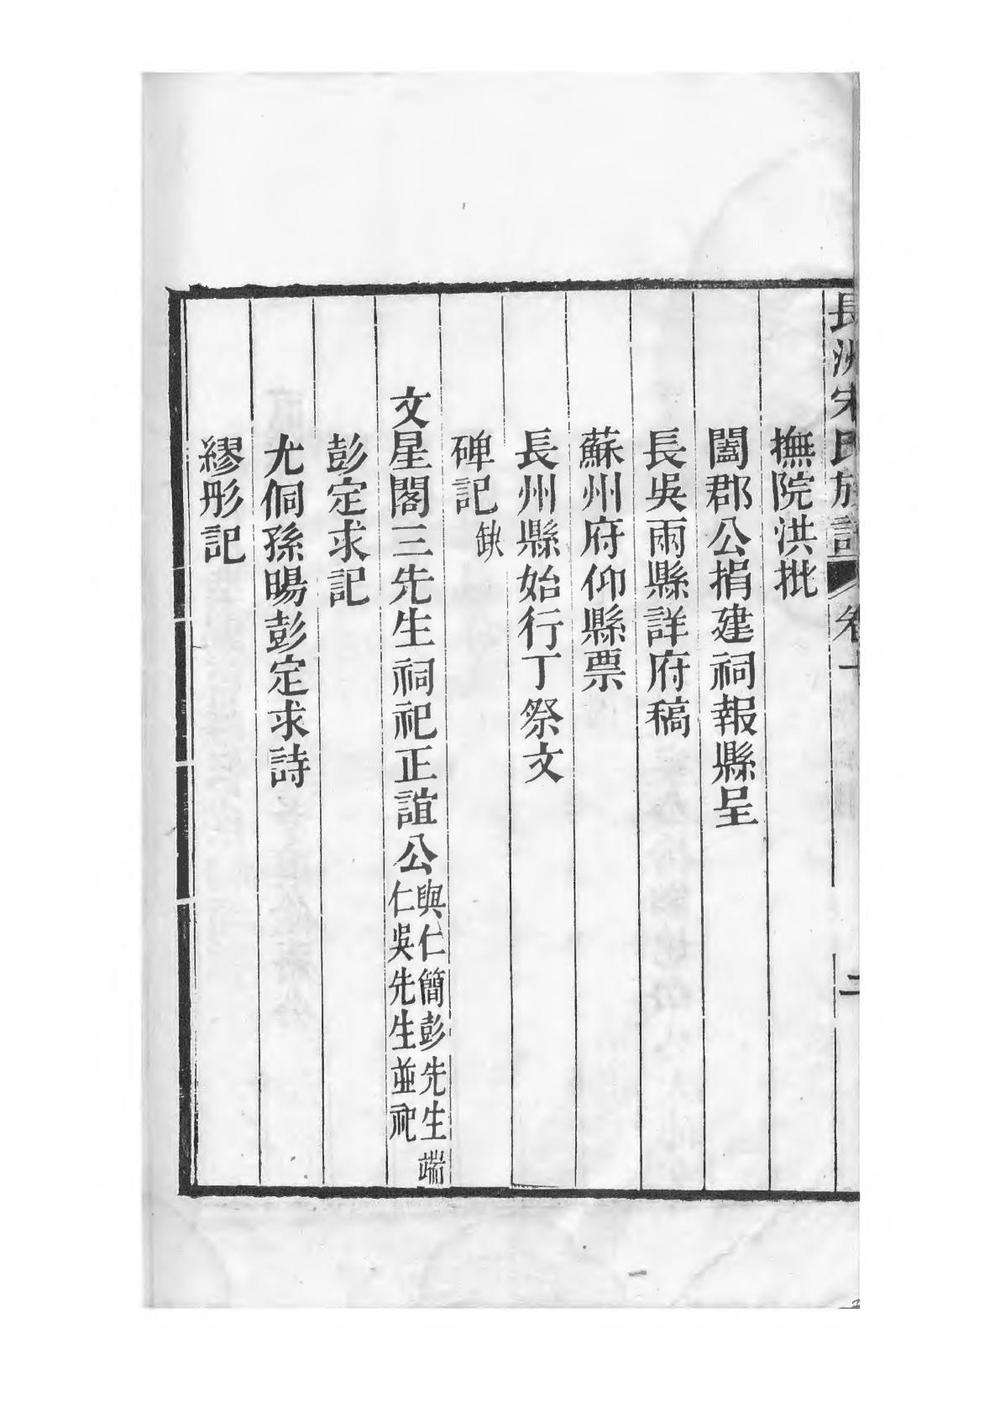 長洲宋氏族譜 卷 二
撫院洪批
闔郡公捐建祠報縣呈
長吳兩縣詳府稿
蘇州府仰縣票
長州縣始行丁祭文
碑記缺
文星閣三先生祠祀正誼公與仁簡彭先生端仁吳先生並祀
彭定求記
尤侗孫暘彭定求詩
繆彤記